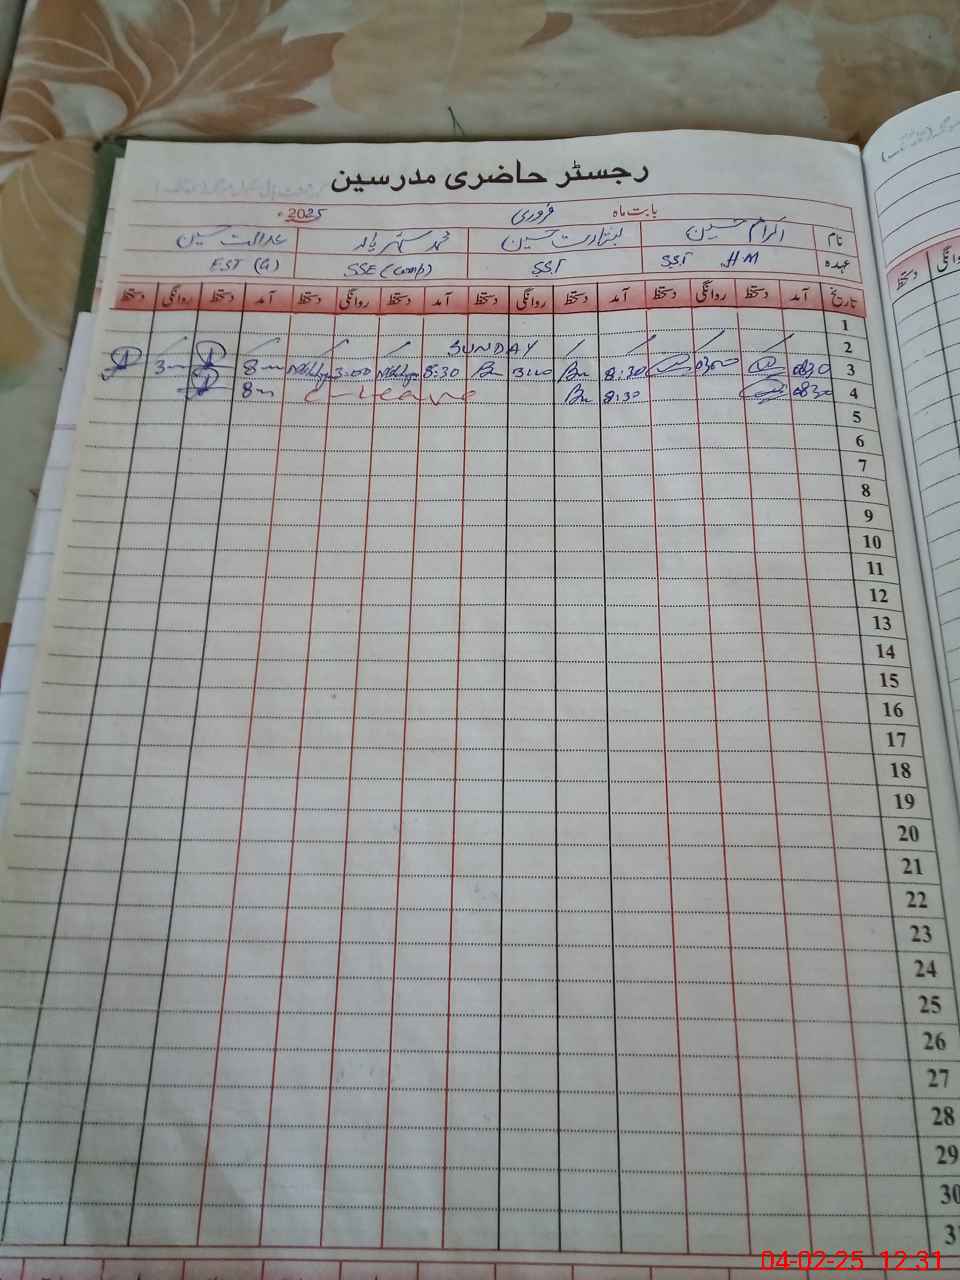 رجسٹر حاضری مدرسین
بابت ماہ فروری 2025ء
نام اکرام حسین بشارت حسین محمد عدالت حسین
عہدہ SST HM SST SSE (Comp) EST (G)
تاریخ آمد دستخط روانگی دستخط آمد دستخط روانگی دستخط آمد دستخط روانگی دستخط آمد دستخط روانگی دستخط
1
2 SUNDAY
3 0830 0300 8:30 3:00 8:30 3:00 8
4 0830 8:30 c-Leave 8
5
6
7
8
9
10
11
12
13
14
15
16
17
18
19
20
21
22
23
24
25
26
27
28
29
30
روانگی
دستخط
04-02-25 12.31